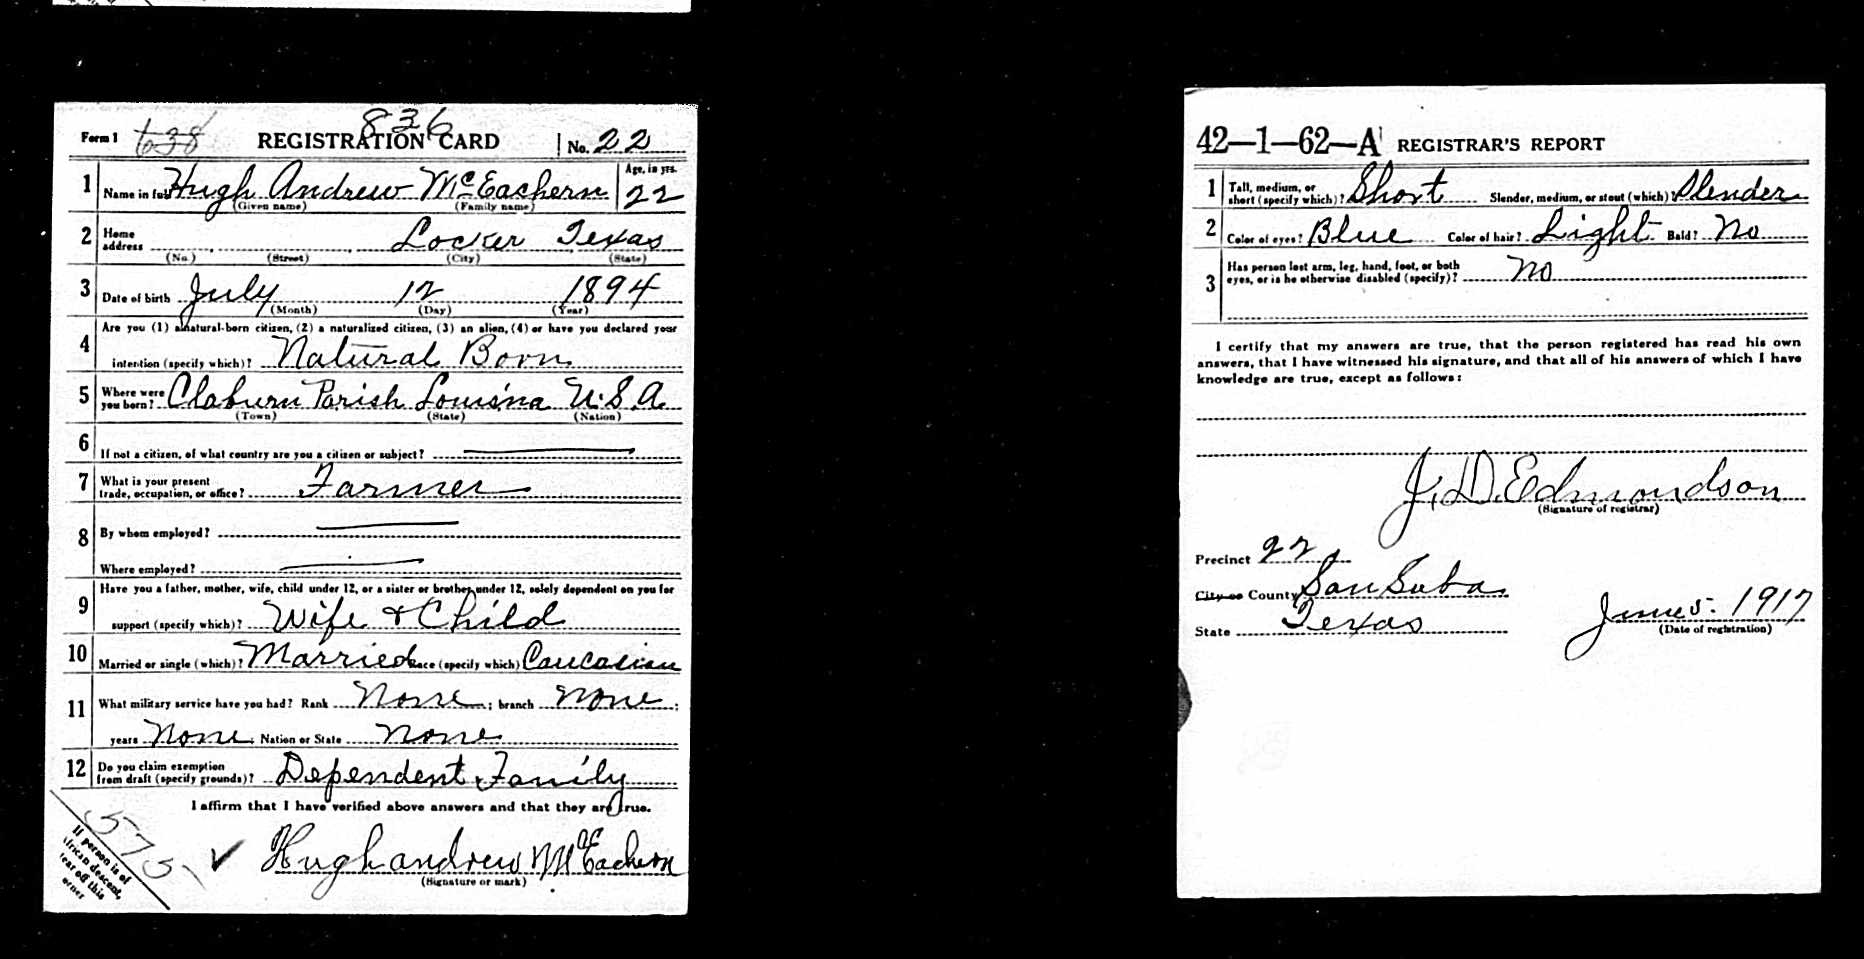 836
Form 1 638 REGISTRATION CARD No. 22
1 Name in full Hugh Andrew McEachern Age, in yrs. 22
(Given name) (Family name)
2 Home address Locker Texas
(No.) (Street) (City) (State)
3 Date of birth July 12 1894
(Month) (Day) (Year)
Are you (1) a natural-born citizen, (2) a naturalized citizen, (3) an alien, (4) or have you declared your
4 intention (specify which)? Natural Born
5 Where were you born? Claburn Parish Louisina U.S.A.
(Town) (State) (Nation)
6 If not a citizen, of what country are you a citizen or subject?
7 What is your present
trade, occupation, or office? Farmer
8 By whom employed?
Where employed?
Have you a father, mother, wife, child under 12, or a sister or brother under 12, solely dependent on you for
9 support (specify which)? Wife & Child
10 Married or single (which)? Married Race (specify which) Caucasian
11 What military service have you had? Rank None; branch None;
years None; Nation or State None
12 Do you claim exemption
from draft (specify grounds)? Dependent Family
I affirm that I have verified above answers and that they are true.
Hugh andrew McEachern
(Signature or mark)
575
If person is of
African descent,
tear off this
corner
42-1-62-A REGISTRAR'S REPORT
1 Tall, medium, or
short (specify which)? Short Slender, medium, or stout (which) Slender
2 Color of eyes? Blue Color of hair? Light Bald? No
3 Has person lost arm, leg, hand, foot, or both
eyes, or is he otherwise disabled (specify)? No
I certify that my answers are true, that the person registered has read his own
answers, that I have witnessed his signature, and that all of his answers of which I have
knowledge are true, except as follows:
J. D. Edmondson
(Signature of registrar)
Precinct 22
City or County San Saba
State Texas June 5. 1917
(Date of registration)